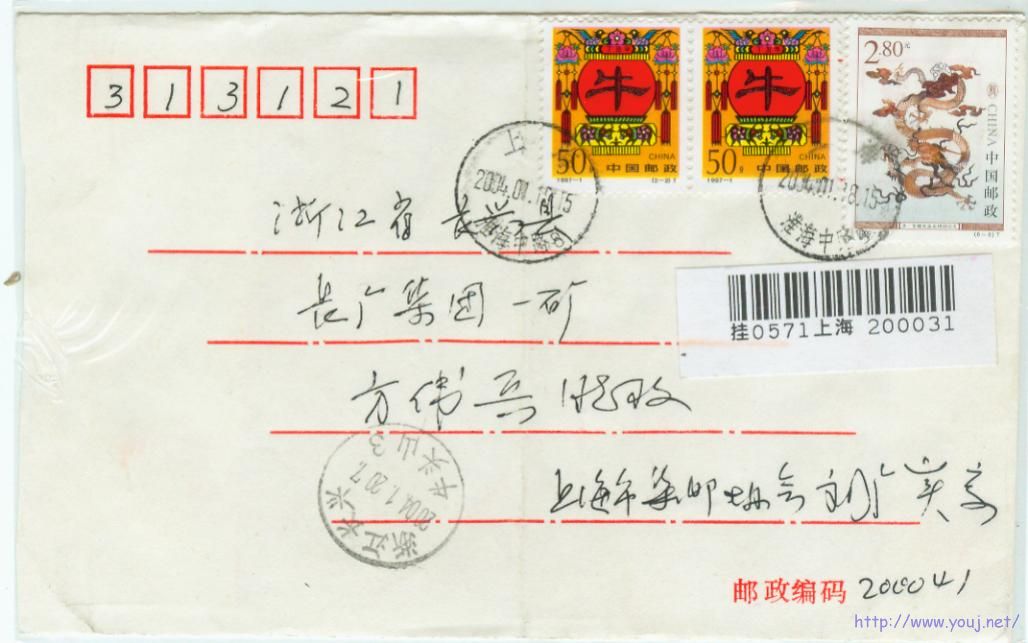 313121
牛 牛
2.80元
CHINA 中国邮政
50分 CHINA 中国邮政
1997-1 (2-2)T
50分 CHINA 中国邮政
1997-1
上
2004.01.18.15
2004.01.18.15
淮海中路
浙江省长兴县
挂0571上海 200031
长广集团一矿
方伟兵
浙江长兴
2004.1.20.7
牛头山 3
上海市集邮协会刘广实寄
邮政编码 200041
http://www.youj.net/